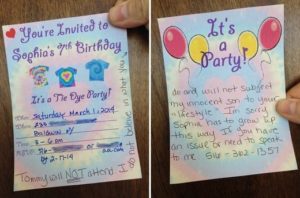 You're Invited to
Sophia's 7th Birthday
It's a Tie Dye Party!
Date: Saturday, March 1, 2014
Baldwin NY
Time: 3-6 pm
by 2-17-14
Tommy will NOT attend. I do not believe in what you
It's
a
Party!
do and will not subject
my innocent son to your
"lifestyle". I'm sorry
Sophia has to grow up
this way. If you have
an issue or need to speak
to me: 516-362-1357